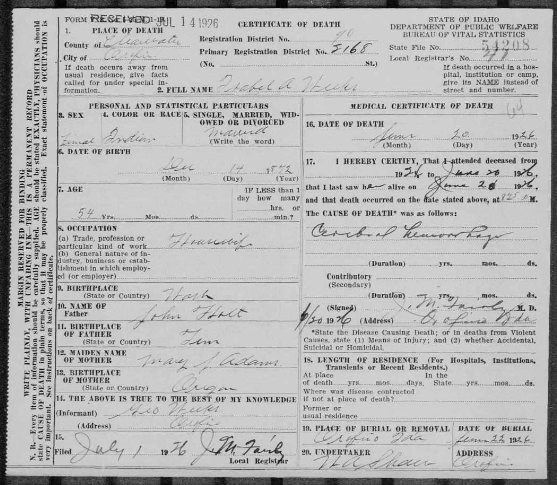 FORM
RECEIVED JUL 14 1926
CERTIFICATE OF DEATH
STATE OF IDAHO
DEPARTMENT OF PUBLIC WELFARE
BUREAU OF VITAL STATISTICS
1. PLACE OF DEATH
County of Clearwater
City of Orofino
Registration District No. 90
Primary Registration District No. 5168
(No. St.
State File No. 54208
Local Registrar's No.
If death occurs away from usual residence, give facts called for under special information.
If death occurred in a hospital, institution or camp, give its NAME instead of street and number.
2. FULL NAME Isabel A Weeks
64
PERSONAL AND STATISTICAL PARTICULARS
3. SEX
Femal
4. COLOR OR RACE
Indian
5. SINGLE, MARRIED, WIDOWED OR DIVORCED
Married
(Write the word)
6. DATE OF BIRTH
Dec 14 1872
(Month) (Day) (Year)
7. AGE
54 Yrs. Mos. ds.
IF LESS than 1 day how many hrs. or min.?
8. OCCUPATION
(a) Trade, profession or particular kind of work
Housewif
(b) General nature of industry, business or establishment in which employed (or employer)
9. BIRTHPLACE
(State or Country) Wash
10. NAME OF FATHER
John Holt
11. BIRTHPLACE OF FATHER
(State or Country) Tenn
12. MAIDEN NAME OF MOTHER
Mary J Adams
13. BIRTHPLACE OF MOTHER
(State or Country) Oregon
14. THE ABOVE IS TRUE TO THE BEST OF MY KNOWLEDGE
(Informant) Geo Weeks
(Address) Orofino
15.
Filed July 1 1926 J. M. Fairly
Local Registrar
MEDICAL CERTIFICATE OF DEATH
16. DATE OF DEATH
June 20 1926
(Month) (Day) (Year)
17. I HEREBY CERTIFY, That I attended deceased from
1926, to June 20 1926,
that I last saw her alive on June 20 1926,
and that death occurred on the date stated above, at M.
The CAUSE OF DEATH* was as follows:
Cerebral hemorrhage
(Duration) yrs. mos. ds.
Contributory
(Secondary)
(Duration) yrs. mos. ds.
(Signed) J M Fairly M. D.
6/30 1926 (Address) Orofino Ida
*State the Disease Causing Death; or in deaths from Violent Causes, state (1) Means of Injury; and (2) whether Accidental, Suicidal or Homicidal.
18. LENGTH OF RESIDENCE (For Hospitals, Institutions, Transients or Recent Residents.)
At place of death yrs. mos. days. In the State yrs. mos. ds.
Where was disease contracted if not at place of death?
Former or usual residence
19. PLACE OF BURIAL OR REMOVAL
Orofino Ida
DATE OF BURIAL
June 22 1926
20. UNDERTAKER
ADDRESS
Orofino
MARGIN RESERVED FOR BINDING
WRITE PLAINLY, WITH UNFADING INK—THIS IS A PERMANENT RECORD
N. B.—Every item of information should be carefully supplied. AGE should be stated EXACTLY, PHYSICIANS should state CAUSE OF DEATH in plain terms, so that it may be properly classified. Exact statement of OCCUPATION is very important. See instructions on back of certificate.